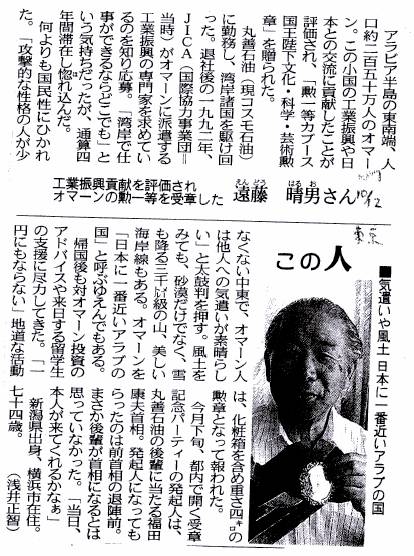 アラビア半島の東南端、人
口約二百五十万人のオマー
ン。この小国の工業振興や日
本との交流に貢献したことが
評価され、「勲一等カブース
国王陛下文化・科学・芸術勲
章」を贈られた。
丸善石油（現コスモ石油）
に勤務し、湾岸諸国を駆け回
った。退社後の一九九二年、
ＪＩＣＡ（国際協力事業団＝
当時）がオマーンに派遣する
工業振興の専門家を求めてい
るのを知り応募。「湾岸で仕
事ができるならどこでも」と
いう気持ちだったが、通算四
年間滞在し惚れ込んだ。
何よりも国民性にひかれ
た。「攻撃的な性格の人が少
工業振興貢献を評価され
オマーンの勲一等を受章した
えんどう はるお
遠藤 晴男さん
10/12
東京
この人
■気遣いや風土 日本に一番近いアラブの国
なくない中東で、オマーン人
は他人への気遣いが素晴らし
い」と太鼓判を押す。風土を
みても、砂漠だけでなく、雪
も降る三千㍍級の山、美しい
海岸線もある。オマーンを
「日本に一番近いアラブの
国」と呼ぶゆえんでもある。
帰国後も対オマーン投資の
アドバイスや来日する留学生
の支援に尽力してきた。「一
円にもならない」地道な活動
は、化粧箱を含め重さ四㌔の
勲章となって報われた。
今月下旬、都内で開く受章
記念パーティーの発起人は、
丸善石油の後輩に当たる福田
康夫首相。発起人になっても
らったのは前首相の退陣前。
まさか後輩が首相になるとは
思っていなかった。「当日、
本人が来てくれるかなぁ」
新潟県出身、横浜市在住。
七十四歳。
（浅井正智）